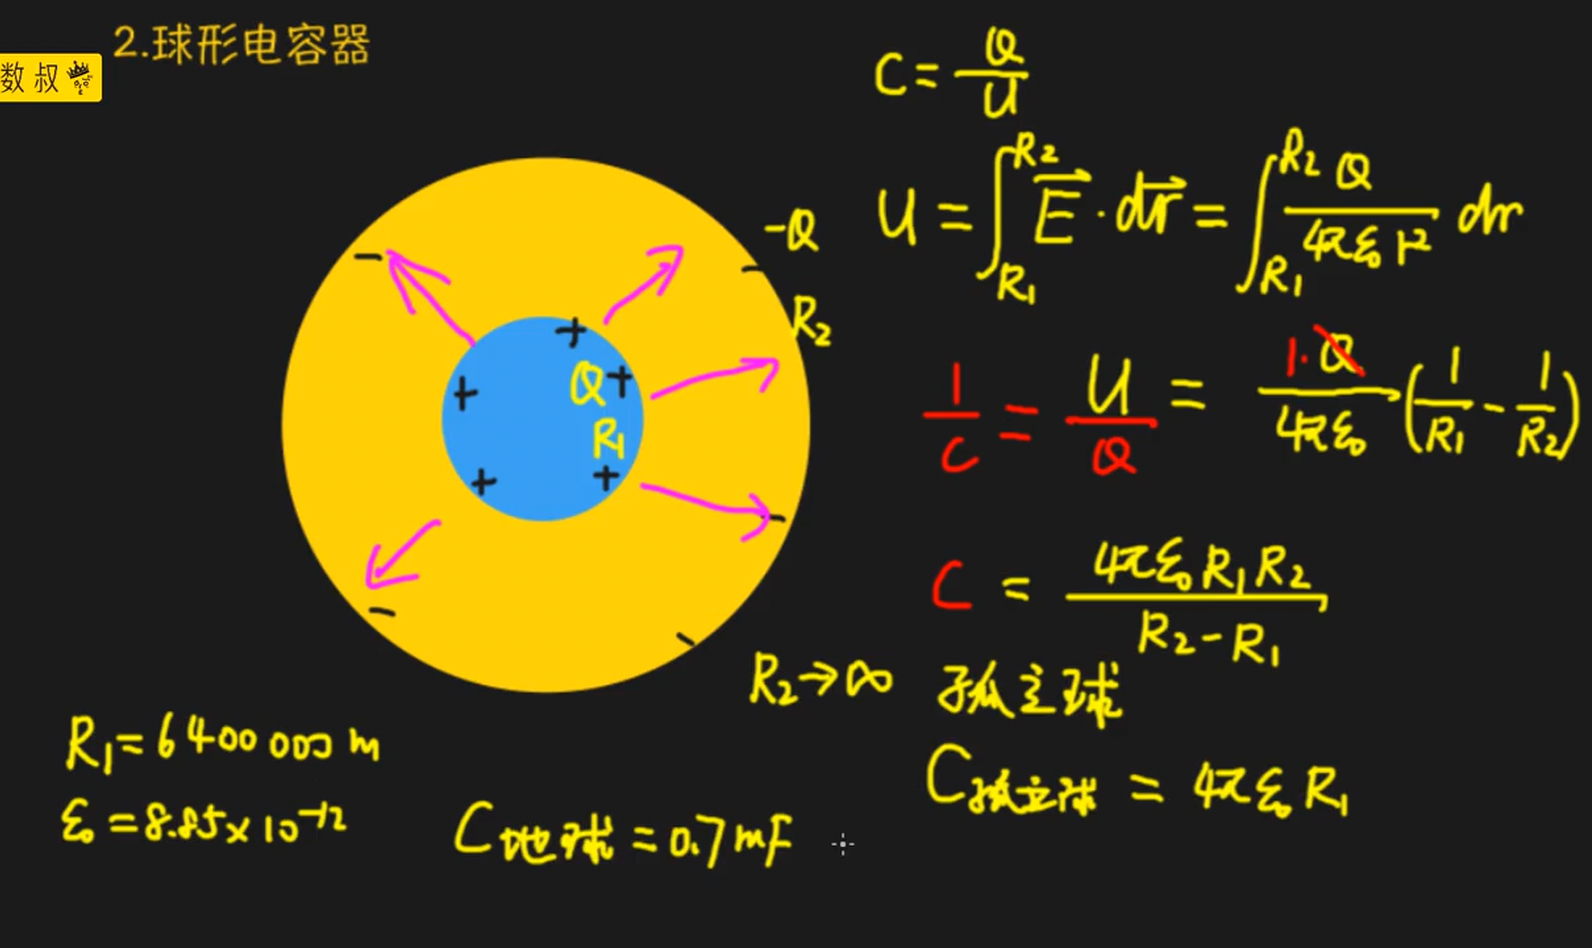 2.球形电容器
数叔
C = Q/U
U = ∫_{R₁}^{R₂} E⃗ · dr⃗ = ∫_{R₁}^{R₂} Q/(4πε₀r²) dr
-Q
R₂
+
Q+
R₁
+
+
+
-
-
-
-
-
1/C = U/Q = 1·Q/(4πε₀) (1/R₁ - 1/R₂)
C = 4πε₀R₁R₂/(R₂-R₁)
R₂→∞ 孤立球
C孤立球 = 4πε₀R₁
R₁=6400000m
ε₀=8.85×10⁻¹²
C地球=0.7mF